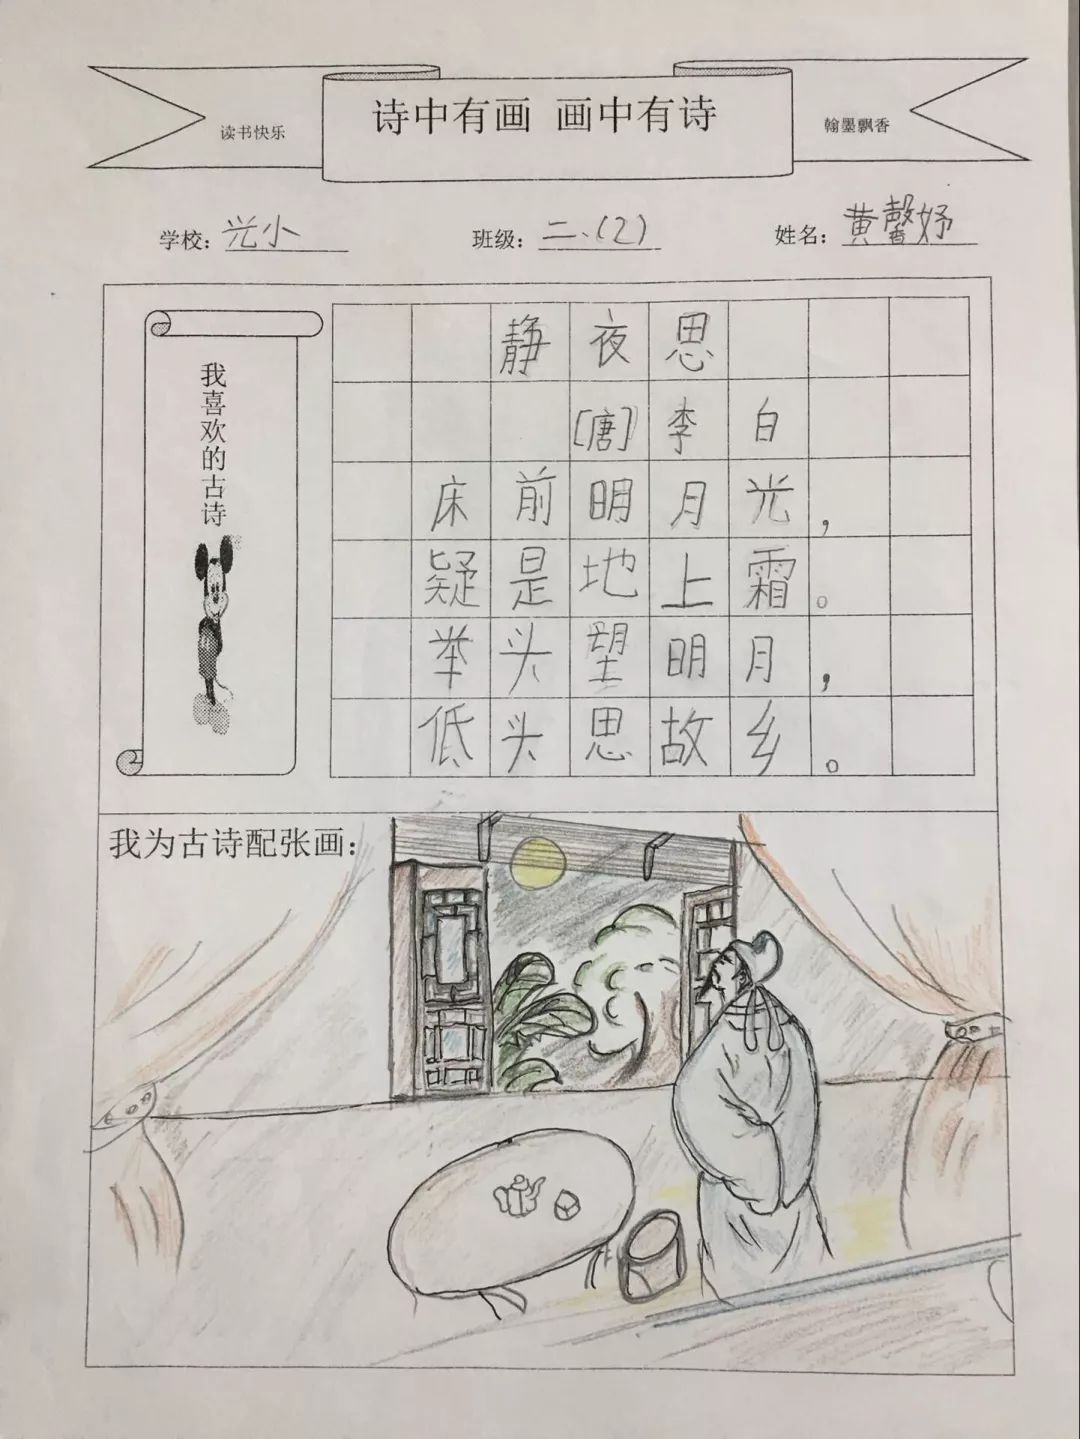 诗中有画 画中有诗
读书快乐
翰墨飘香
学校：光小 班级：二、(2) 姓名：黄馨妤
我喜欢的古诗
静夜思
[唐]李白
床前明月光，
疑是地上霜。
举头望明月，
低头思故乡。
我为古诗配张画：